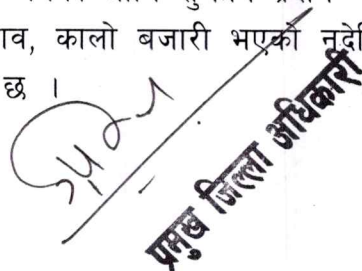 ाव, कालो बजारी भएको नदेि
छ ।
प्रमुख जिल्ला अधिकारी